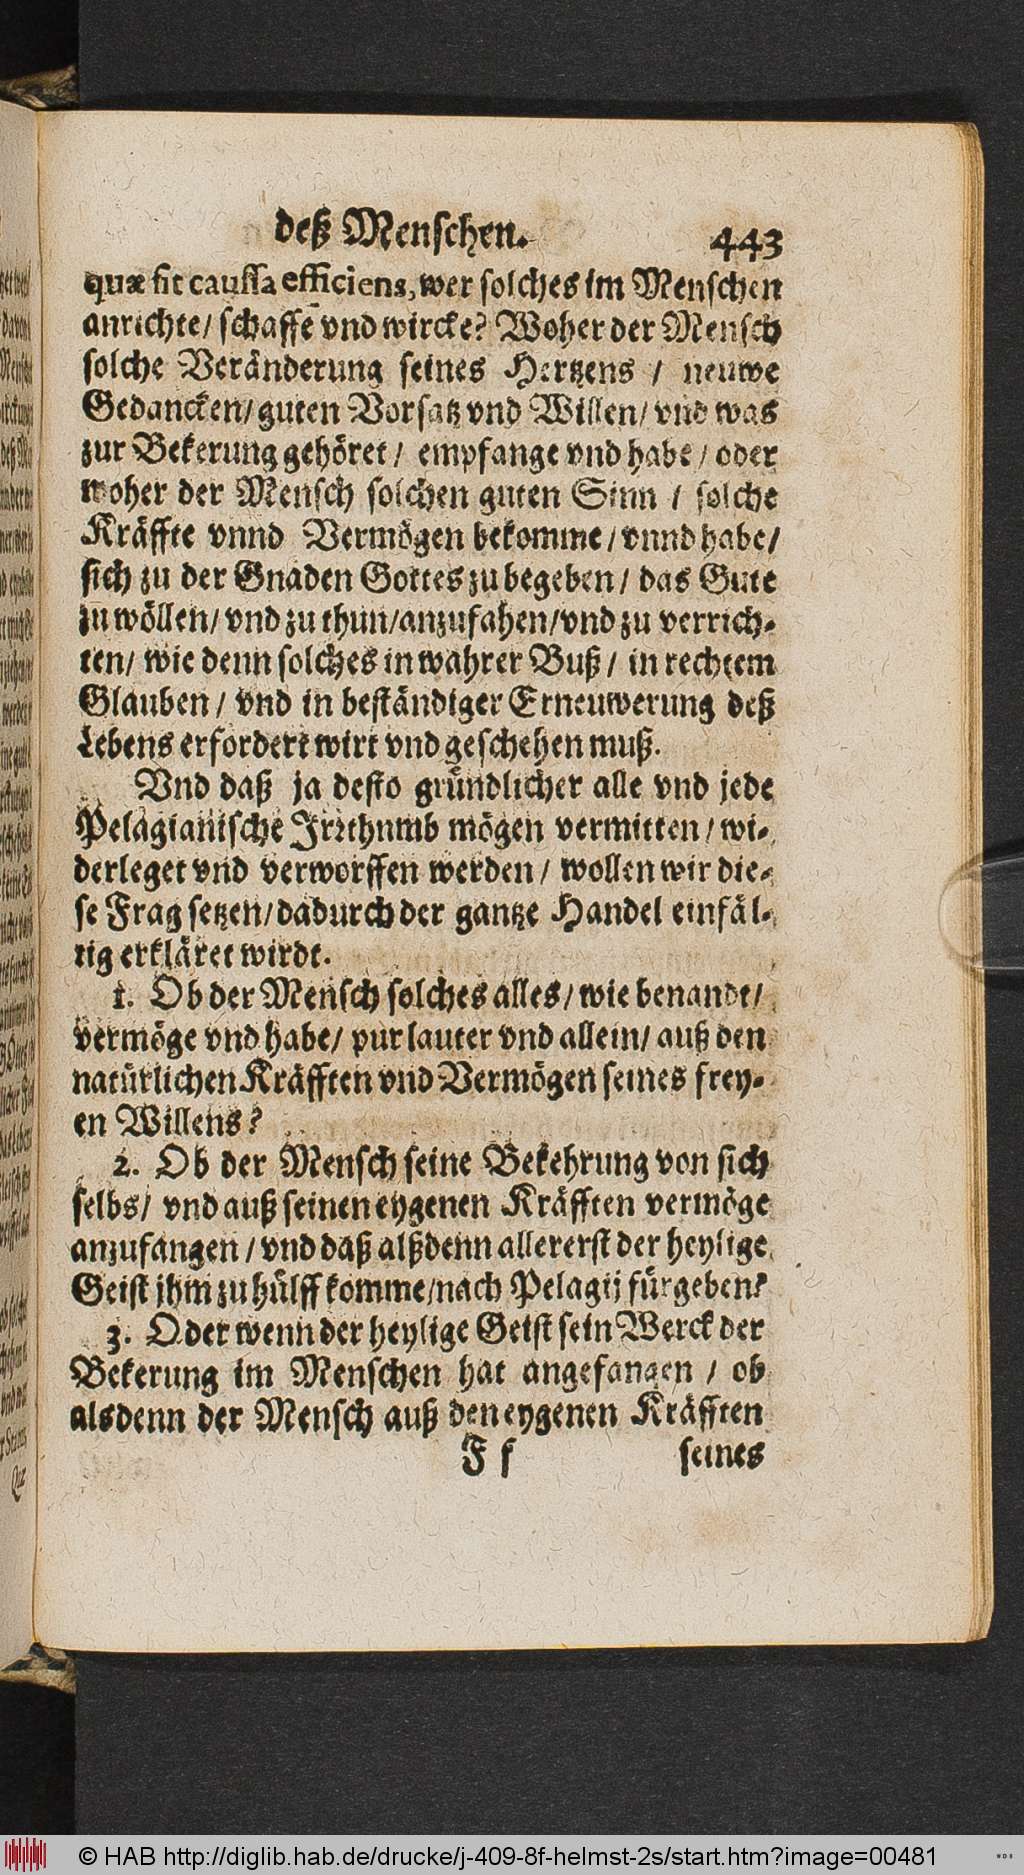 deß Menschen. 443
quæ sit caussa efficiens, wer solches im Menschen
anrichte/ schaffe vnd wircke? Woher der Mensch
solche Veränderung seines Hertzens / neuwe
Gedancken/ guten Vorsatz vnd Willen/ vnd was
zur Bekerung gehöret/ empfange vnd habe/ oder
woher der Mensch solchen guten Sinn / solche
Kräffte vnnd Vermögen bekomme/ vnnd habe/
sich zu der Gnaden Gottes zu begeben/ das Gute
zu wöllen/ vnd zu thun/ anzufahen/ vnd zu verrich-
ten/ wie denn solches in wahrer Buß/ in rechtem
Glauben/ vnd in beständiger Erneuwerung deß
Lebens erfordert wirt vnd geschehen muß.
Vnd daß ja desto gründlicher alle vnd jede
Pelagianische Irrthumb mögen vermitten/ wi-
derleget vnd verworffen werden/ wollen wir die-
se Frag setzen/ dadurch der gantze Handel einfäl-
tig erkläret wirdt.
1. Ob der Mensch solches alles/ wie benandt/
vermöge vnd habe/ pur lauter vnd allein/ auß den
natürlichen Kräfften vnd Vermögen seines frey-
en Willens?
2. Ob der Mensch seine Bekehrung von sich
selbs/ vnd auß seinen eygenen Kräfften vermöge
anzufangen/ vnd daß alßdenn allererst der heylige
Geist jhm zu hülff komme/ nach Pelagij fürgeben?
3. Oder wenn der heylige Geist sein Werck der
Bekerung im Menschen hat angefangen / ob
alsdenn der Mensch auß den eygenen Kräfften
F f seines
© HAB http://diglib.hab.de/drucke/j-409-8f-helmst-2s/start.htm?image=00481